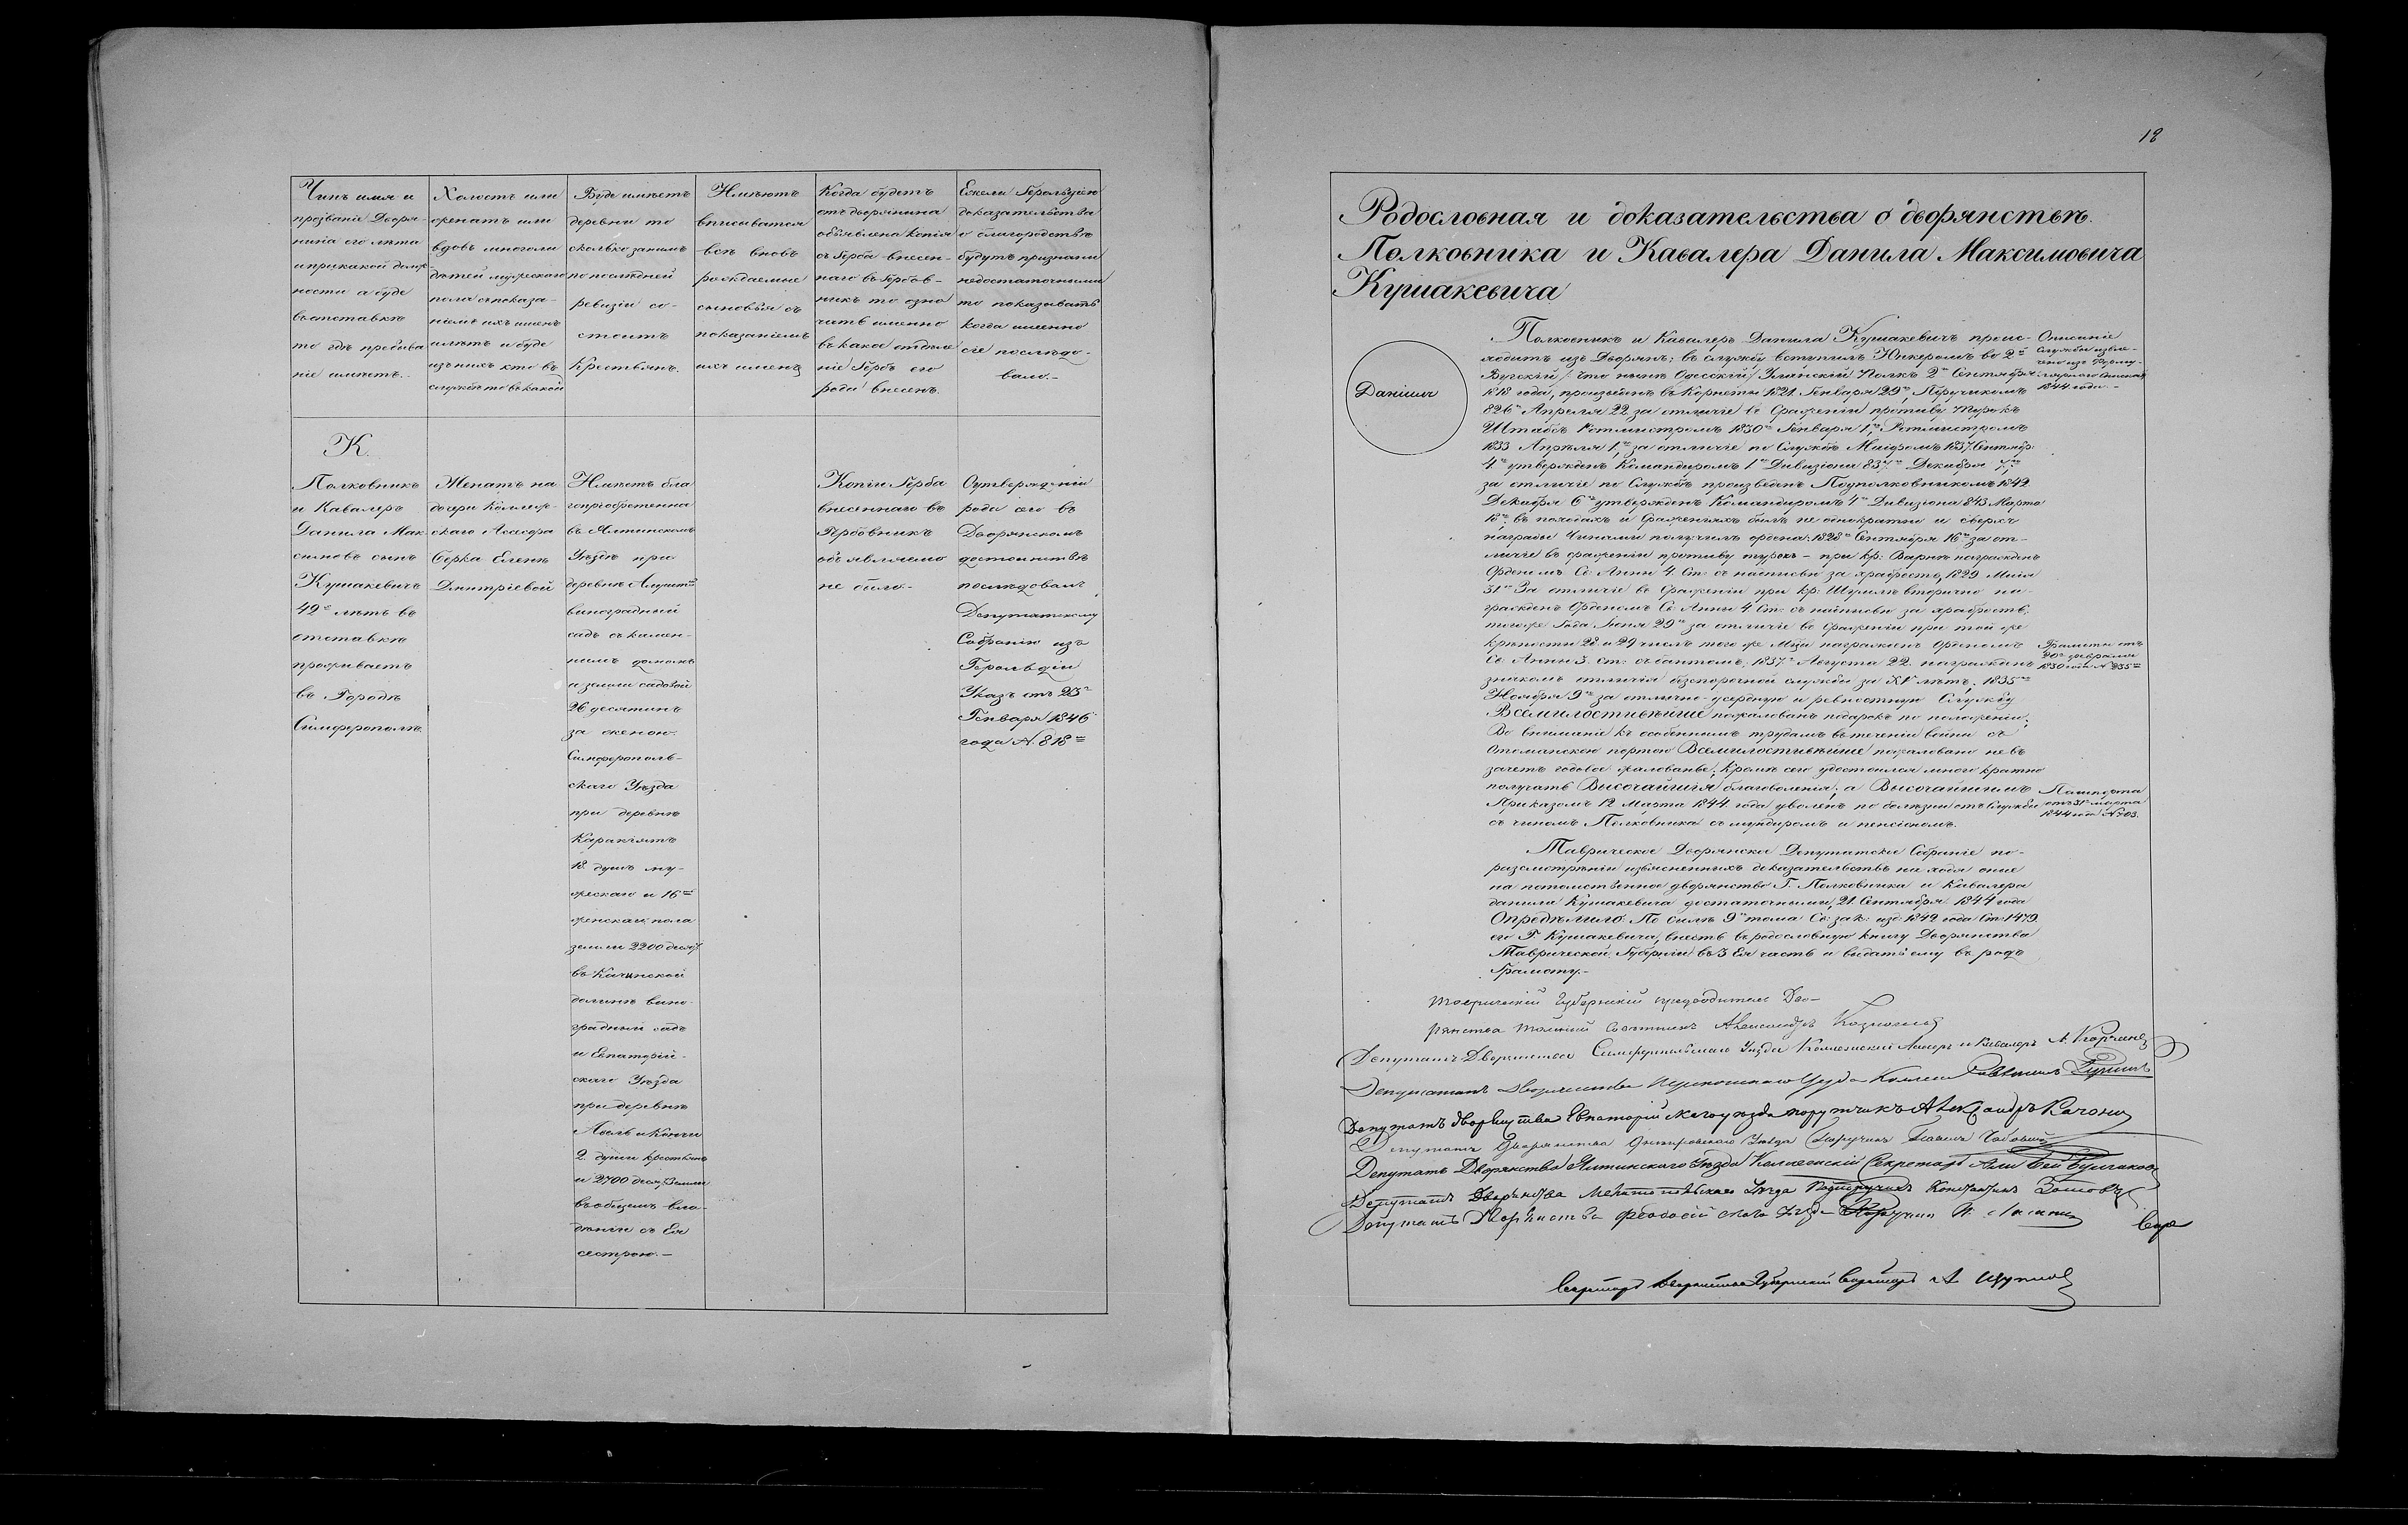 Чинъ имя и
прозваніе Дворя-
нина его лѣта
и при какой долж-
ности а буде
въ отставкѣ
то гдѣ пребыва
ніе имѣетъ.
Холостъ или
женатъ или
вдовъ многоли
дѣтей мужескаго
пола съ показа-
ніемъ ихъ именъ
и лѣтъ и буде
изъ нихъ кто въ
службѣ то въ какой
Буде имѣетъ
деревни то
сколько за нимъ
по последней
ревизіи со-
стоитъ
Крестьянъ.
Имѣютъ
вписыватся
всѣ вновь
рождаемые
сыновья съ
показаніемъ
ихъ именъ
Когда будетъ
отъ дворянина
объявлена копія
съ Герба внесен-
наго въ Гербов-
никъ то озна
чить именно
въ какое отдѣле
ніе Гербъ его
рода внесенъ.
Ежели Герольдіею
доказательства
о благородствѣ
будутъ признаны
недостаточными
то показывать
когда именно
сіе послѣдо-
вало.-
К.
Полковникъ
и Кавалеръ
Данила Мак
симовъ сынъ
Кушакевичъ
49 лѣтъ въ
отставкѣ
проживаетъ
въ Городѣ
Симферополѣ.
Женатъ на
дочери Коллеж-
скаго Асесора
Серка Еленѣ
Дмитріевой
Имѣетъ бла
гопріобретенна
въ Ялтинскомъ
Уѣздѣ при
деревнѣ
виноградный
садъ съ камен-
нымъ домомъ
и земли садовой
26 десятинъ
за женою.
Симферополь-
скаго Уѣзда
при деревнѣ
Каракіятъ
18. душъ му-
жескаго и 16
женскаго пола
земли 2200 десят.
въ Качинской
долинѣ вино-
градный садъ
и Евпаторій-
скаго Уѣзда
при деревнѣ
2. души крестьянъ
и 2700 десят. Земли
въ общемъ вла-
дѣніи съ Ея
сестрою.-
Копіи Герба
внесеннаго въ
Гербовникъ
объявляемо
не было.-
О утвержденіи
рода его въ
Дворянскомъ
достоинствѣ
послѣдовалъ
Депутатскому
Собранію изъ
Герольдіи
Указъ отъ 23
Генваря 1846
года №. 818
18
Родословная и доказательства о дворянствѣ.
Полковника и Кавалера Данила Максимовича
Кушакевича
Даніилъ
Полковникъ и Кавалеръ Данила Кушакевичъ проис-
ходитъ изъ Дворянъ; въ службу вступилъ Юнкеромъ во 2
Бугскій /: что нынѣ Одесскій / Уланскій Полкъ 2 Сентября
1818 года, произведенъ въ Корнеты 1821 Генваря 29, Поручикомъ
826 Апреля 22 за отличіе въ Сраженіи противу Турокъ
Штабсъ Ротмистромъ 1830 Генваря 1, Ротмистромъ
1833 Апрѣля 1, за отличіе по Службѣ Маіоромъ 1837. Сентябр:
4 утвержденъ Командиромъ 1 Дивизіона 837 Декабря 7,
за отличіе по Службѣ произведенъ Подполковникомъ 1842
Декабря 6 утвержденъ Командиромъ 1 Дивизіона 843 Марта
18, въ походахъ и сраженіяхъ былъ не однократно и сверхъ
награды Чинами получилъ ордена: 1828 Сентября 16 за от-
личіе въ сраженіи противу турокъ - при кр: Варнѣ награжденъ
Орденомъ Св: Анны 4. Ст: съ надписью за храбрость, 1829 Маія
31 За отличіе въ Сраженіи при кр: Шумлѣ вторично на-
гражденъ Орденомъ Св Анны 4 Ст: съ надписью за храбрость;
того же Года Іюня 29 за отличіе въ Сраженіи при той же
крѣпости 28 и 29 числъ того же Мца награжденъ Орденомъ
Св Анны 3. ст: съ бантомъ; 1837 Августа 22 награжденъ
знакомъ отличія безпорочной службы за XV лѣтъ; 1835
Ноября 9 за отлично-усердную и ревностную Службу
Всемилостивѣйше пожалованъ подарокъ по положенію,
Во вниманіе къ особеннымъ трудамъ въ теченіи войны съ
Отоманскою портою Всемилостивѣйше пожаловано не въ
зачетъ годовое жалованье; Кромѣ сего удостоился много кратно
получать Высочайшія благоволенія; а Высочайшимъ
Приказомъ 12 Марта 1844 года уволенъ по болѣзни отъ Службы
съ чиномъ Полковника съ мундиромъ и пенсіономъ.
Описаніе
Службы извле-
чено изъ Форму-
лярнаго списка
1844 года.-
Грамоты отъ
20 февраля
1830 года № 235
Пашпорта
отъ 31 марта
1844 года № 703.
Таврическое Дворянское Депутатское Собраніе по-
разсмотрѣніи изъясненныхъ доказательствъ находя оные
на потомственное дворянство Г. Полковника и Кавалера
Данилы Кушакевича достаточными, 21 Сентября 1844 года
Опредѣлило: По силѣ 9 тома Св: зак: изд: 1842 года Ст: 1479.
его Г Кушакевича, внесть въ родословную книгу Дворянства
Таврической Губерніи въ 3 Ея часть и выдать ему въ родъ
Грамоту.-
Таврическій Губернскій предводитель Дво-
рянства Тайный Совѣтникъ Александръ Казначеевъ
Депутатъ Дворянства Симферопольскаго Уѣзда Коллежскій Асесоръ и Кавалеръ А.
Депутатъ Дворянства Перекопскаго Уѣзда
Депутатъ дворянства Евпаторійскаго уѣзда поручикъ Александръ Качони
Депутатъ Дворянства Днѣпровскаго Уѣзда Поручикъ
Депутатъ Дворянства Ялтинскаго Уѣзда Коллежскій Секретарь Али Бей Булгаковъ
Депутатъ Дворянства Мелитопольскаго Уѣзда Подпоручикъ Константинъ Зотовъ
Депутатъ Дворянства Феодосійскаго Уѣзда Поручикъ
Секретарь Дворянства Губернскій Секретарь А